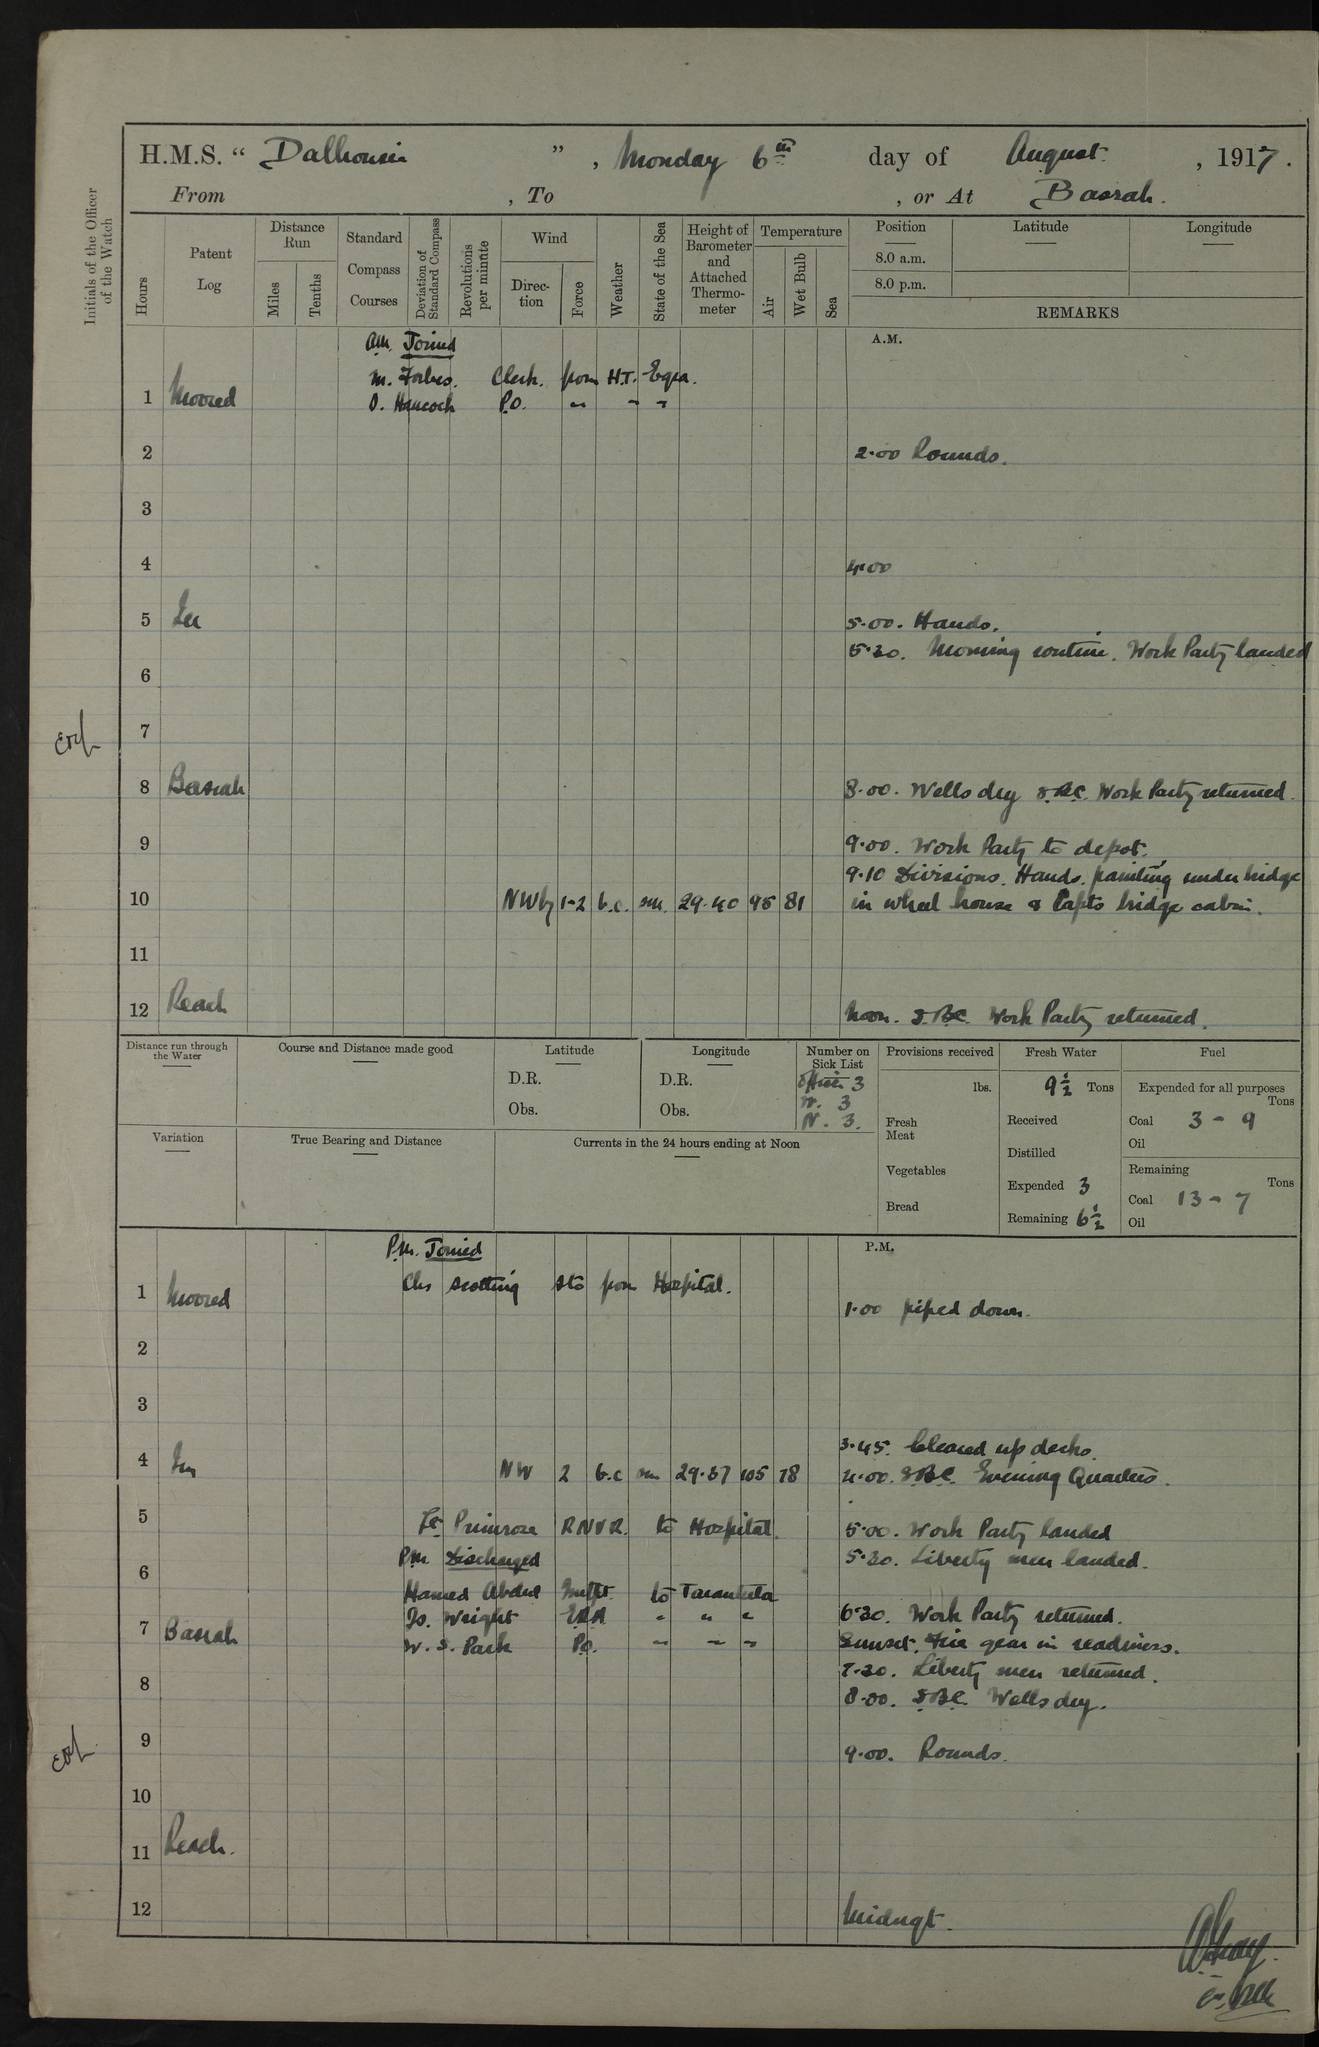 H.M.S. " Dalhousie " , Monday 6th day of August , 1917.
From , To , or At Basrah.
Initials of the Officer of the Watch
Hours
Patent Log
Distance Run
Miles
Tenths
Standard Compass Courses
Deviation of Standard Compass
Revolutions per minute
Wind
Direction
Force
Weather
State of the Sea
Height of Barometer and Attached Thermometer
Temperature
Air
Wet Bulb
Sea
Position
8.0 a.m.
8.0 p.m.
Latitude
Longitude
REMARKS
A.M.
AM. Joined
M. Forbes. Clerk. from H.T. Egra.
1 Moored O. Hancock P.O. " " "
2 2.00 Rounds.
3
4 4.00
5 In 5.00. Hands.
5.30. Morning routine. Work Party landed
6
7
8 Basrah 8.00. Wells dry S.B.C. Work Party returned.
9 9.00. Work Party to depot.
9.10 Divisions. Hands. painting under bridge
10 NWby 1-2 b.c. sm. 29.40 95 81 in wheel house & Capts bridge cabin.
11
12 Reach Noon. S.B.C. Work Party returned.
Distance run through the Water
Course and Distance made good
Latitude
D.R.
Obs.
Longitude
D.R.
Obs.
Number on Sick List
Officers 3
W. 3
N. 3.
Provisions received
lbs.
Fresh Meat
Vegetables
Bread
Fresh Water
9½ Tons
Received
Distilled
Expended 3
Remaining 6½
Fuel
Expended for all purposes
Tons
Coal 3 - 9
Oil
Remaining
Tons
Coal 13 - 7
Oil
Variation
True Bearing and Distance
Currents in the 24 hours ending at Noon
P.M.
P.M. Joined
1 Moored Chs Scotting Sto from Hospital.
1.00 piped down.
2
3
3.45. Cleared up decks.
4 In NW 2 b.c sm 29.37 105 78 4.00. S.B.C. Evening Quarters.
5 Lt Primrose RNVR. to Hospital. 5.00. Work Party landed
P.M. Discharged 5.30. Liberty men landed.
6
Hamed Abdul to Tarantula
Jo. Wright ERA " " " 6.30. Work Party returned.
7 Basrah W. S. Park P.O. " " " Sunset. Fire gear in readiness.
7.30. Liberty men returned.
8 8.00. S.B.C. Wells dry.
9 9.00. Rounds.
10
11 Reach.
12 Midngt.